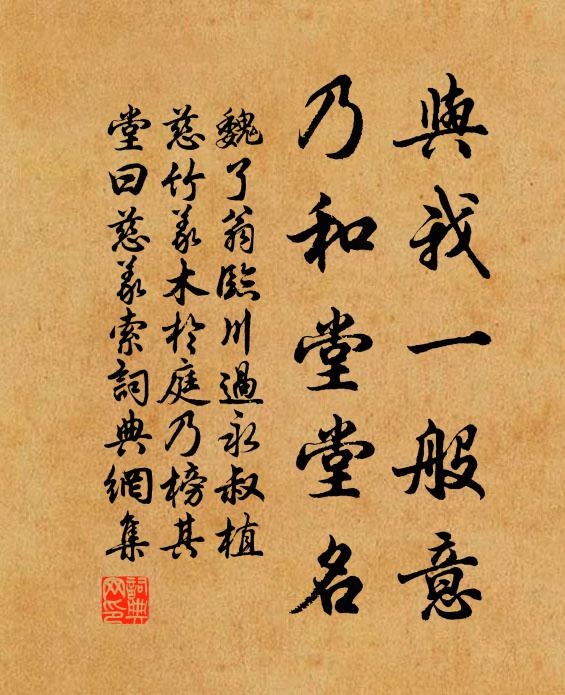 與我一般意
乃和堂堂名
魏了翁臨川過永叔植
慈竹義木於庭乃榜其
堂曰慈義索詞典網集
詞典網印